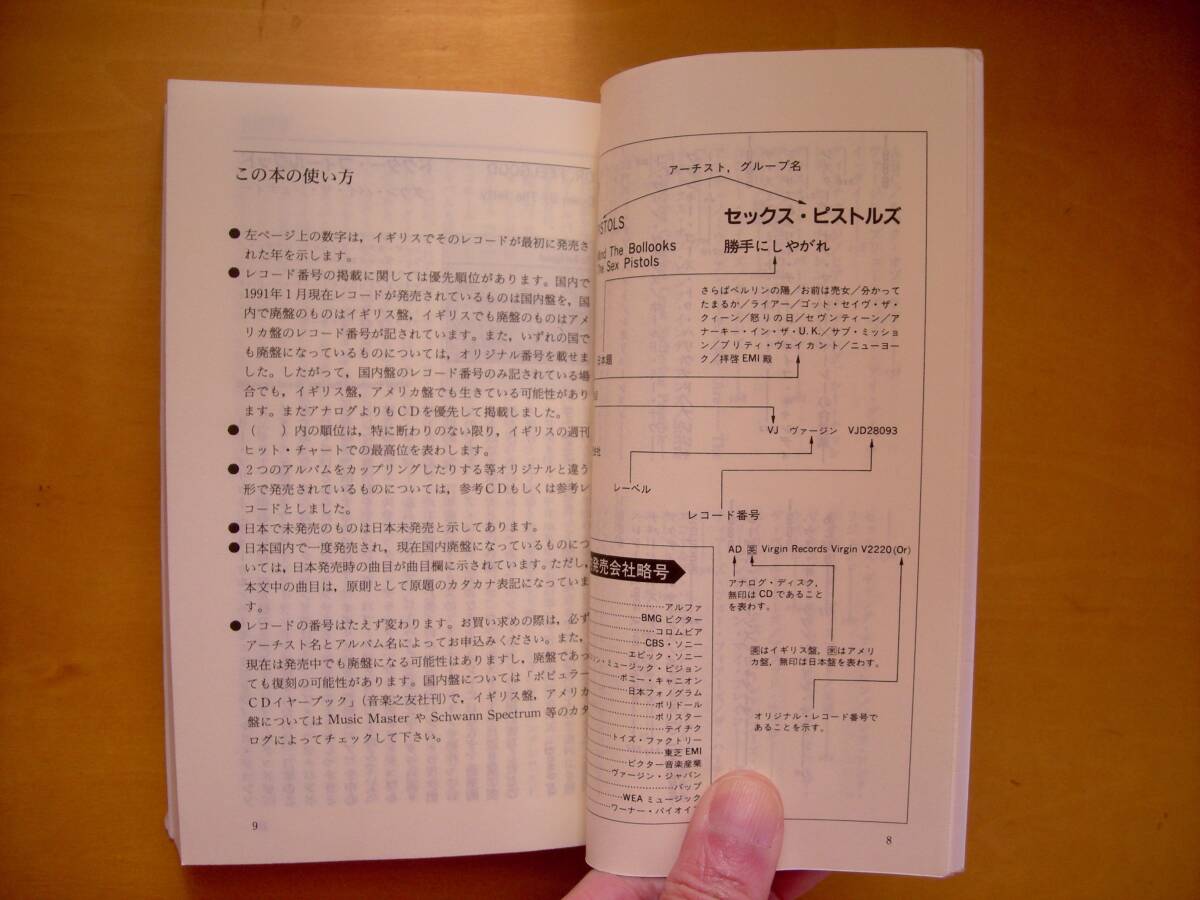 アーチスト，グループ名
セックス・ピストルズ
勝手にしやがれ
STOLS
And The Bollooks
The Sex Pistols
さらばベルリンの陽／お前は売女／分かって
たまるか／ライアー／ゴット・セイヴ・ザ・
クィーン／怒りの日／セヴンティーン／ア
ナーキー・イン・ザ・U.K.／サブ・ミッショ
ン／プリティ・ヴェイカント／ニューヨー
ク／拝啓EMI殿
日本題
VJ ヴァージン VJD28093
レーベル
レコード番号
AD 英 Virgin Records Virgin V2220(Or)
アナログ・ディスク，
無印はCDであること
を表わす。
英はイギリス盤，米はアメリ
カ盤，無印は日本盤を表わす。
オリジナル・レコード番号で
あることを示す。
発売会社略号
アルファ
BMGビクター
コロムビア
CBS・ソニー
エピック・ソニー
ミュージック・ビジョン
ポニー・キャニオン
日本フォノグラム
ポリドール
ポリスター
テイチク
トイズ・ファクトリー
東芝EMI
ビクター音楽産業
ヴァージン・ジャパン
バップ
WEAミュージック
ワーナー・パイオイ
8
この本の使い方
●左ページ上の数字は，イギリスでそのレコードが最初に発売さ
れた年を示します。
●レコード番号の掲載に関しては優先順位があります。国内で
1991年1月現在レコードが発売されているものは国内盤を，国
内で廃盤のものはイギリス盤，イギリスでも廃盤のものはアメ
リカ盤のレコード番号が記されています。また，いずれの国で
も廃盤になっているものについては，オリジナル番号を載せま
した。したがって，国内盤のレコード番号のみ記されている場
合でも，イギリス盤，アメリカ盤でも生きている可能性があり
ます。またアナログよりもCDを優先して掲載しました。
●（　）内の順位は，特に断わりのない限り，イギリスの週刊
ヒット・チャートでの最高位を表わします。
●2つのアルバムをカップリングしたりする等オリジナルと違う
形で発売されているものについては，参考CDもしくは参考レ
コードとしました。
●日本で未発売のものは日本未発売と示してあります。
●日本国内で一度発売され，現在国内廃盤になっているものにつ
いては，日本発売時の曲目が曲目欄に示されています。ただし，
本文中の曲目は，原則として原題のカタカナ表記になっていま
す。
●レコードの番号はたえず変わります。お買い求めの際は，必ず
アーチスト名とアルバム名によってお申込みください。また，
現在は発売中でも廃盤になる可能性はありますし，廃盤であっ
ても復刻の可能性があります。国内盤については「ポピュラー
CDイヤーブック」（音楽之友社刊）で，イギリス盤，アメリカ
盤についてはMusic MasterやSchwann Spectrum等のカタ
ログによってチェックして下さい。
9